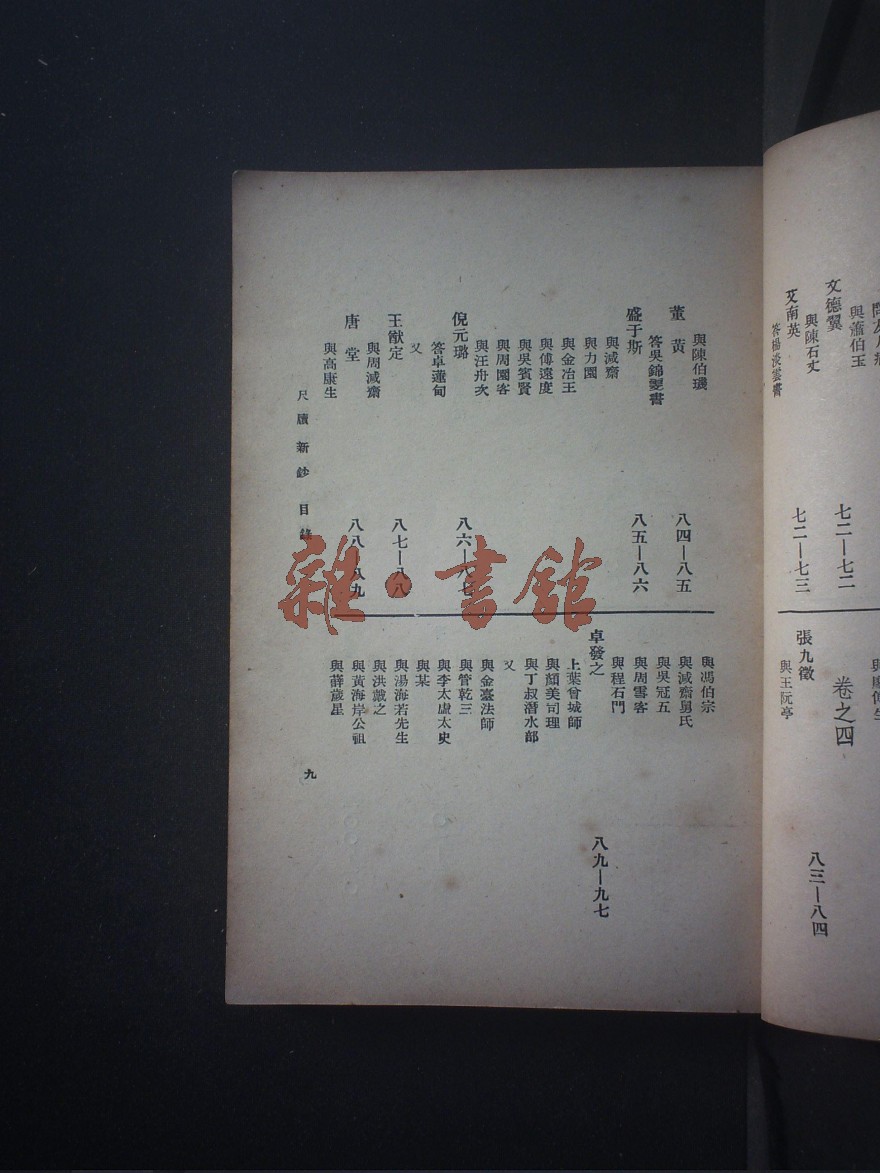 與蕭伯玉
文德翼
七二—七二
與陳石丈
艾南英
七二—七三
答楊淡雲書
卷之四
張九徵
八三—八四
與王阮亭
與陳伯璣
董黃
八四—八五
答吳錦雯書
盛于斯
八五—八六
與減齋
與力園
與金冶王
與傅遠度
與吳賓賢
與周園客
與汪舟次
倪元璐
八六—八七
答卓蓮旬
又
王猷定
八七—八八
與周減齋
唐堂
八八—八九
與高康生
與馮伯宗
與減齋舅氏
與吳冠五
與周雪客
與程石門
卓發之
八九—九七
上葉曾城師
與顏美司理
與丁叔潛水部
又
與金臺法師
與管乾三
與李太虛太史
與某
與湯海若先生
與洪戴之
與黃海岸公祖
與薛歲星
尺牘新鈔 目錄
九
雜·書館